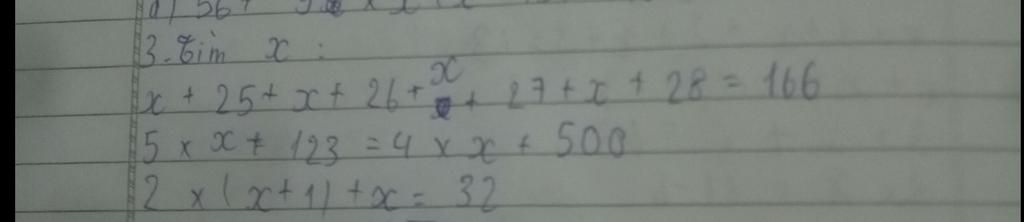 3. Tìm x :
x + 25 + x + 26 + x + 27 + x + 28 = 166
5 × x + 123 = 4 × x + 500
2 × (x + 1) + x = 32